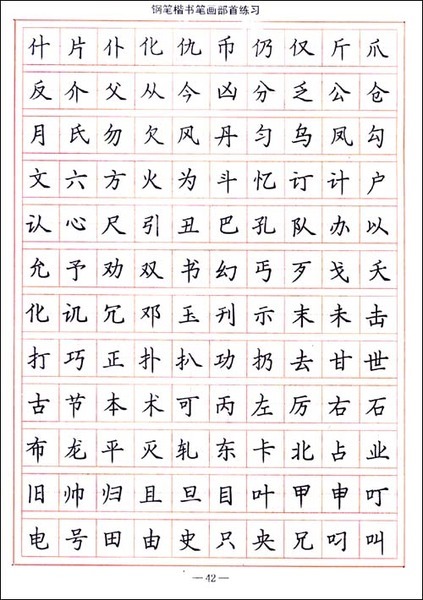 钢笔楷书笔画部首练习
什片仆化仇币仍仅斤爪
反介父从今凶分乏公仓
月氏勿欠风丹匀乌凤勾
文六方火为斗忆订计户
认心尺引丑巴孔队办以
允予劝双书幻丐歹戈夭
化讥冗邓玉刊示末未击
打巧正扑扒功扔去甘世
古节本术可丙左厉右石
布龙平灭轧东卡北占业
旧帅归且旦目叶甲申叮
电号田由史只央兄叼叫
—42—